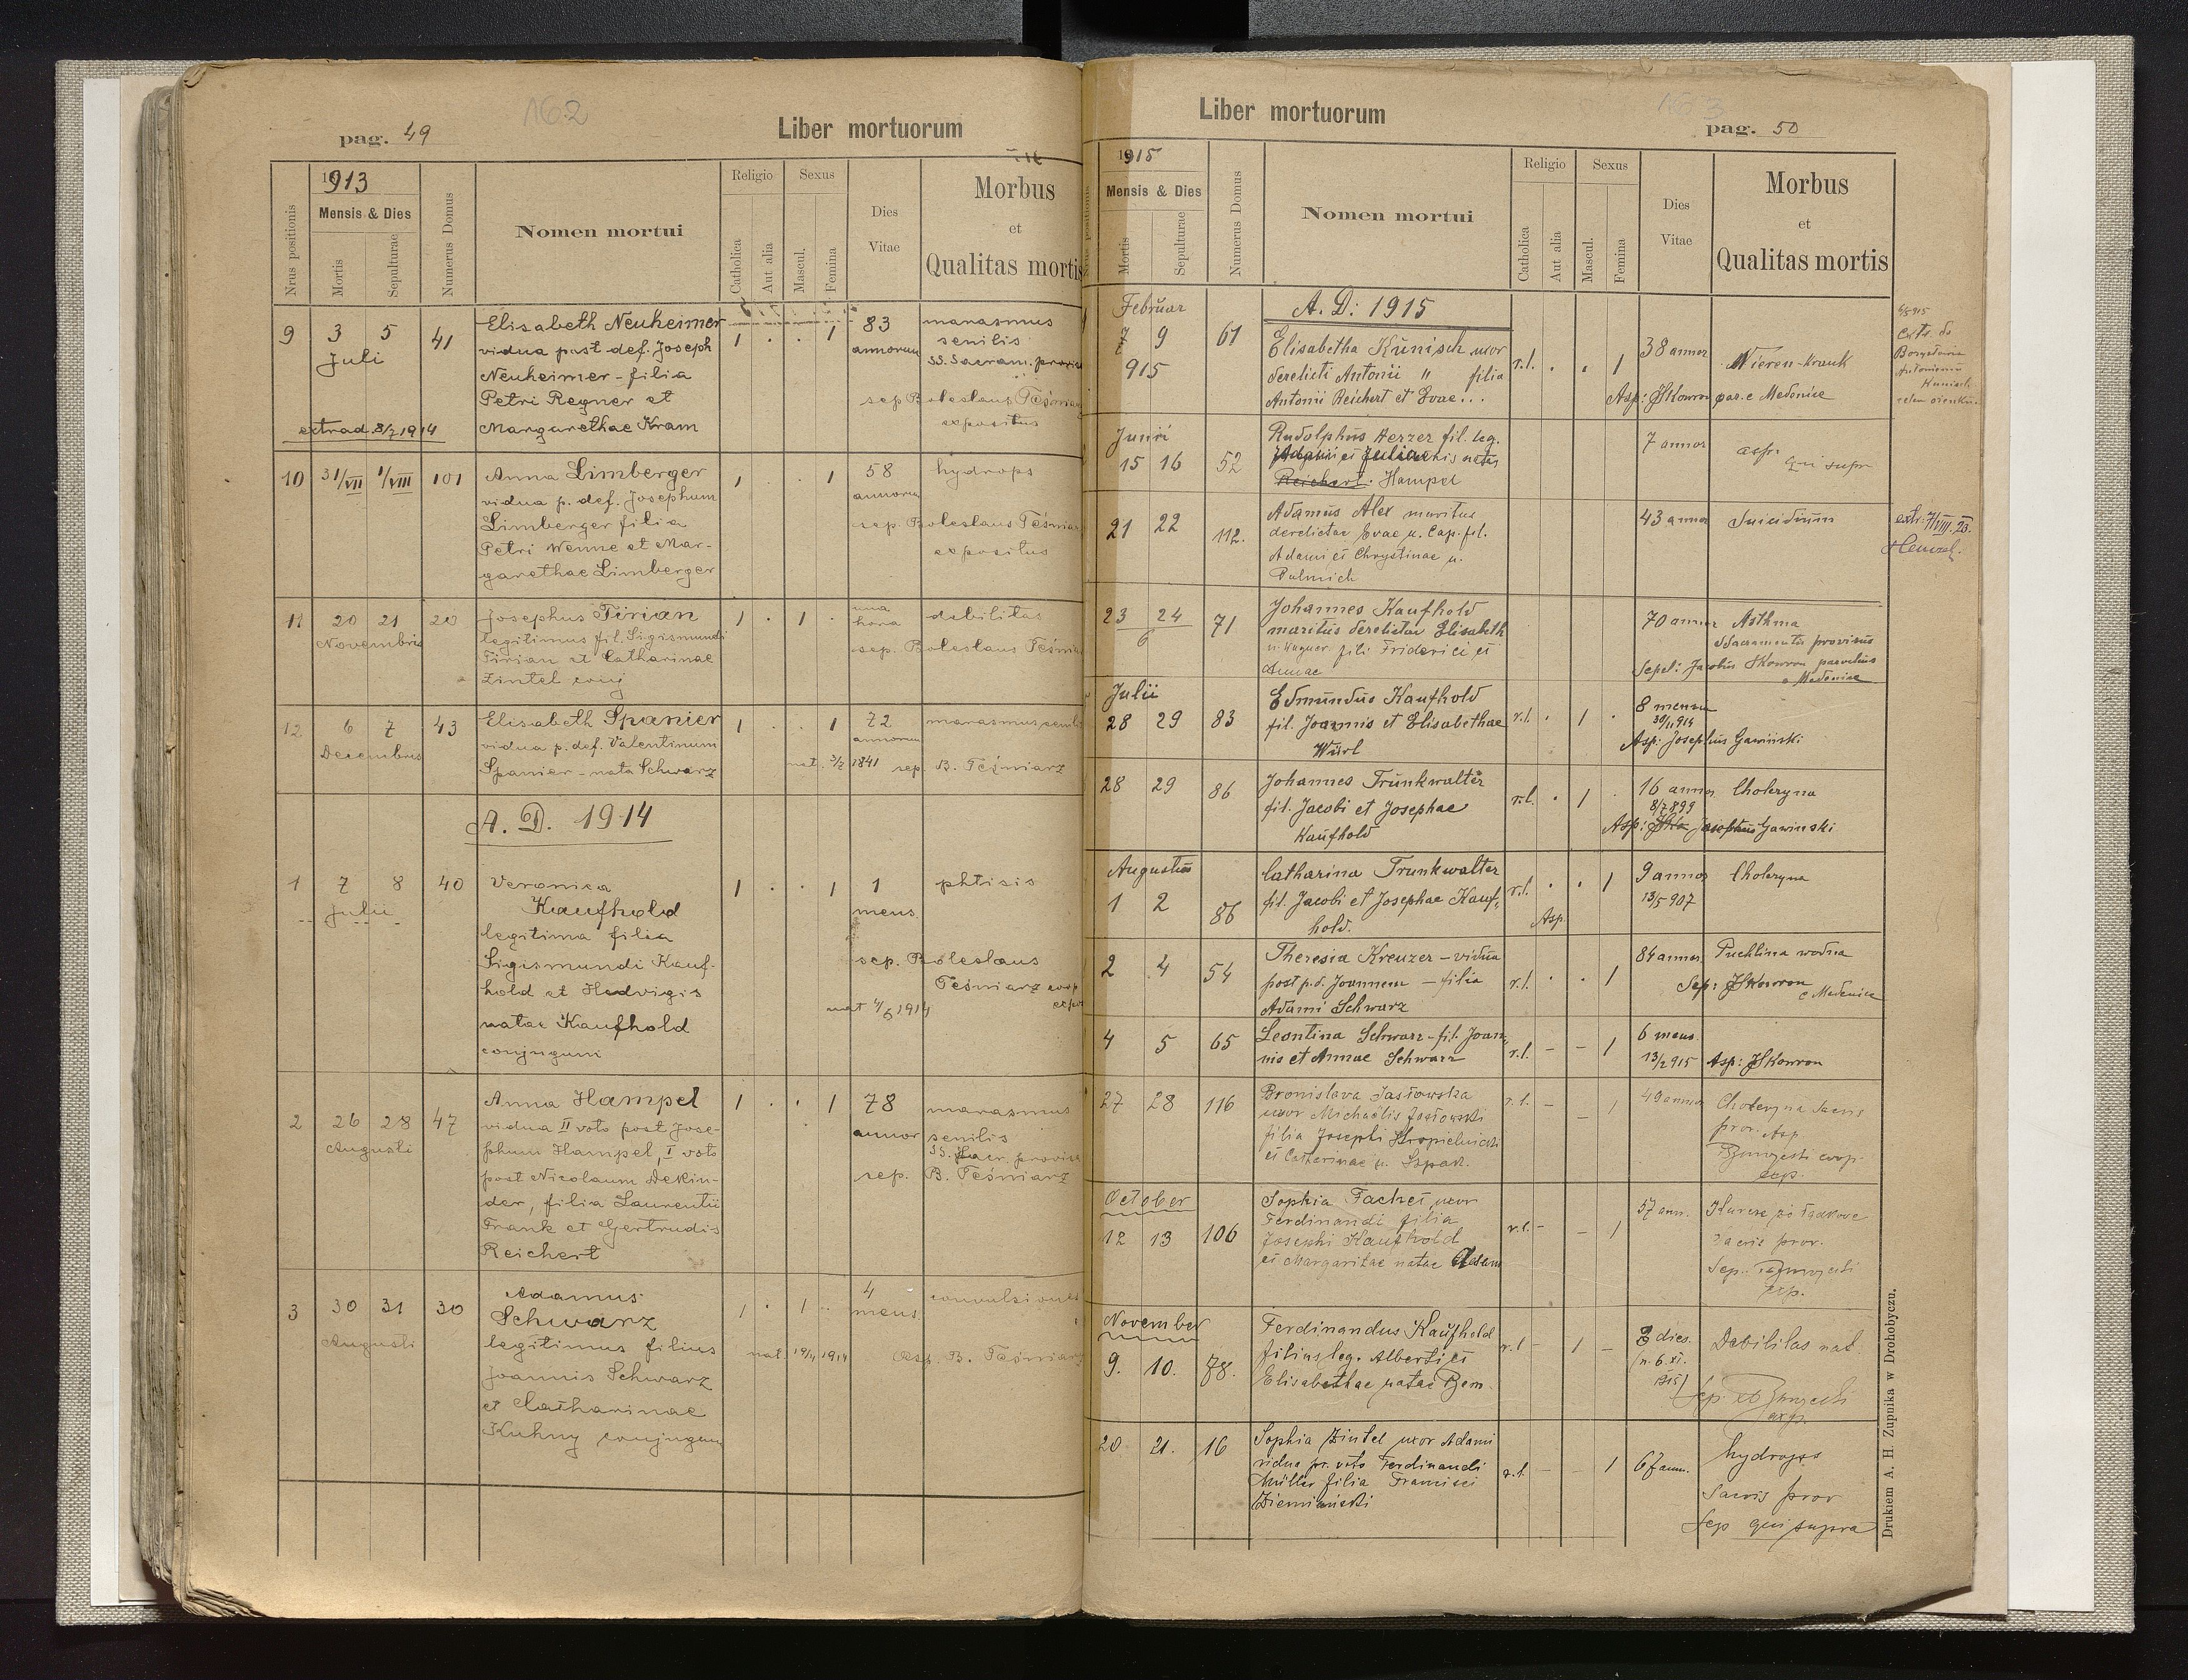 162
pag. 49
Liber mortuorum
1913
Mensis & Dies
Nrus positionis
Mortis
Sepulturae
Numerus Domus
Nomen mortui
Religio
Catholica
Aut alia
Sexus
Mascul.
Femina
Dies
Vitae
Morbus
et
Qualitas mortis
9 3 5 41 Elisabeth Neuheimer 1 . . 1 83 marasmus
Juli vidua post def. Joseph annorum senilis
Neuheimer - filia SS. Sacram. provisa
Petri Regner et sep. Boleslaus Teśniarz
extrad. 8/7 1914 Margarethae Kram expositus
10 31/VII 1/VIII 101 Anna Limberger 1 . . 1 58 hydrops
vidua p. def. Josephum annorum
Limberger filia sep. Boleslaus Teśniarz
Petri Wenne et Mar- expositus
garethae Limberger
11 20 21 20 Josephus Tirian 1 . 1 . una hora debilitas
Novembris legitimus fil. Sigismundi
Tirian et Catharinae sep. Boleslaus Teśniarz
Zintel conj
12 6 7 43 Elisabeth Spanier 1 . . 1 72 marasmus senilis
Decembris vidua p. def. Valentinum annorum
Spanier - nata Schwarz nat. 3/2 1841 sep. B. Teśniarz
A. D. 1914
1 7 8 40 Veronica 1 . . 1 1 phtisis
Julii Kaufhold mens.
legitima filia
Sigismundi Kauf- sep. Boleslaus
hold et Hedvigis Teśniarz coop
natae Kaufhold nat 4/6 1914
conjugum
2 26 28 47 Anna Hampel 1 . . 1 78 marasmus
Augusti vidua II voto post Jose- annor senilis
phum Hampel, I voto SS. Sacr. provisa
post Nicolaum Dekin- sep. B. Teśniarz
der, filia Laurentii
Frank et Gertrudis
Reichert
3 30 31 30 Adamus 1 . 1 . 4 convulsiones
Augusti Schwarz mens.
legitimus filius nat. 19/4 1914 Asp. B. Teśniarz
Joannis Schwarz
et Catharinae
Kuhny conjugum
Liber mortuorum
pag. 50
1915
Mensis & Dies
Mortis
Sepulturae
Numerus Domus
Nomen mortui
Religio
Catholica
Aut alia
Sexus
Mascul.
Femina
Dies
Vitae
Morbus
et
Qualitas mortis
Februar A. D: 1915
7 9 61 Elisabetha Künisch uxor r.l. . . 1 38 annor Nieren-krank
915 derelicti Antonii " filia
Antonii Reichert et Evae... Asp: JSkowron par. e Medenice
Junii Rudolphus Herzer fil. leg. 7 annor asp.
15 16 52 Adami et Juliae natis qui supr
Reichert. Hampel
21 22 112. Adamus Alex maritus 43 annor Suicidium extr. 7/VIII. 23.
derelictae Evae n. Cap. fil.
Adami et Chrystinae n.
Pulmich
23 24 71 Johannes Kaufhold 70 annor Asthma
6 maritus derelictae Elisabeth SSacramentis provisus
n. Wagner. fili Friderici et Sepel: Jacobus Skowron parochus
Annae e Medenice
Julii Edmundus Kaufhold 8 mensu
28 29 83 fil. Joannis et Elisabethae r.l. . 1 . 30/11 914
Würl Asp: Josephus Gawiński
28 29 86 Johannes Trunkwalter r.l. . 1 . 16 annor Choleryna
fil. Jacobi et Josephae 8/7 899
Kaufhold Asp: Josephus Gawinski
Augustus Catharina Trunkwalter r.l. . . 1 9 annor Choleryna
1 2 86 fil. Jacobi et Josephae Kauf- 13/5 907
hold. Asp.
2 4 54 Theresia Kreuzer - vidua r.l. . . 1 84 annor Puchlina wodna
post p.d. Joannem - filia Sep: JSkowron
Adami Schwarz e Medenice
4 5 65 Leontina Schwarz - fil. Joan- r.l. - - 1 6 mens.
nis et Annae Schwarz 13/2 915 Asp: JSkowron
27 28 116 Bronislava Jasłowska r.l. - - 1 49 annor Choleryna Sacris
uxor Michaelis Jasłowski prov. Asp.
filia Josephi Kropielnicki coop.
et Catharinae n. Szpak. exp.
October Sophia Fachet, uxor 57 ann. Kurcze żołądkowe
12 13 106 Ferdinandi filia r.l. - - 1 Sacris prov.
Josephi Kaufhold Sep.:
et Margaritae natae Adam exp.
November Ferdinandus Kaufhold r.l - 1 - 3 dies. Debilitas nat.
9. 10. 78. filius leg. Alberti et (n. 6. XI. 1915)
Elisabethae natae Bem. Sep. exp.
20 21. 16 Sophia Zintel uxor Adami r.l. - - 1 67 ann. hydrops
vidua pr. voto Ferdinandi Sacris prov
Müller filia Francisci Sep qui supra
Ziemiański
Drukiem A. H. Zupnika w Drohobyczu.